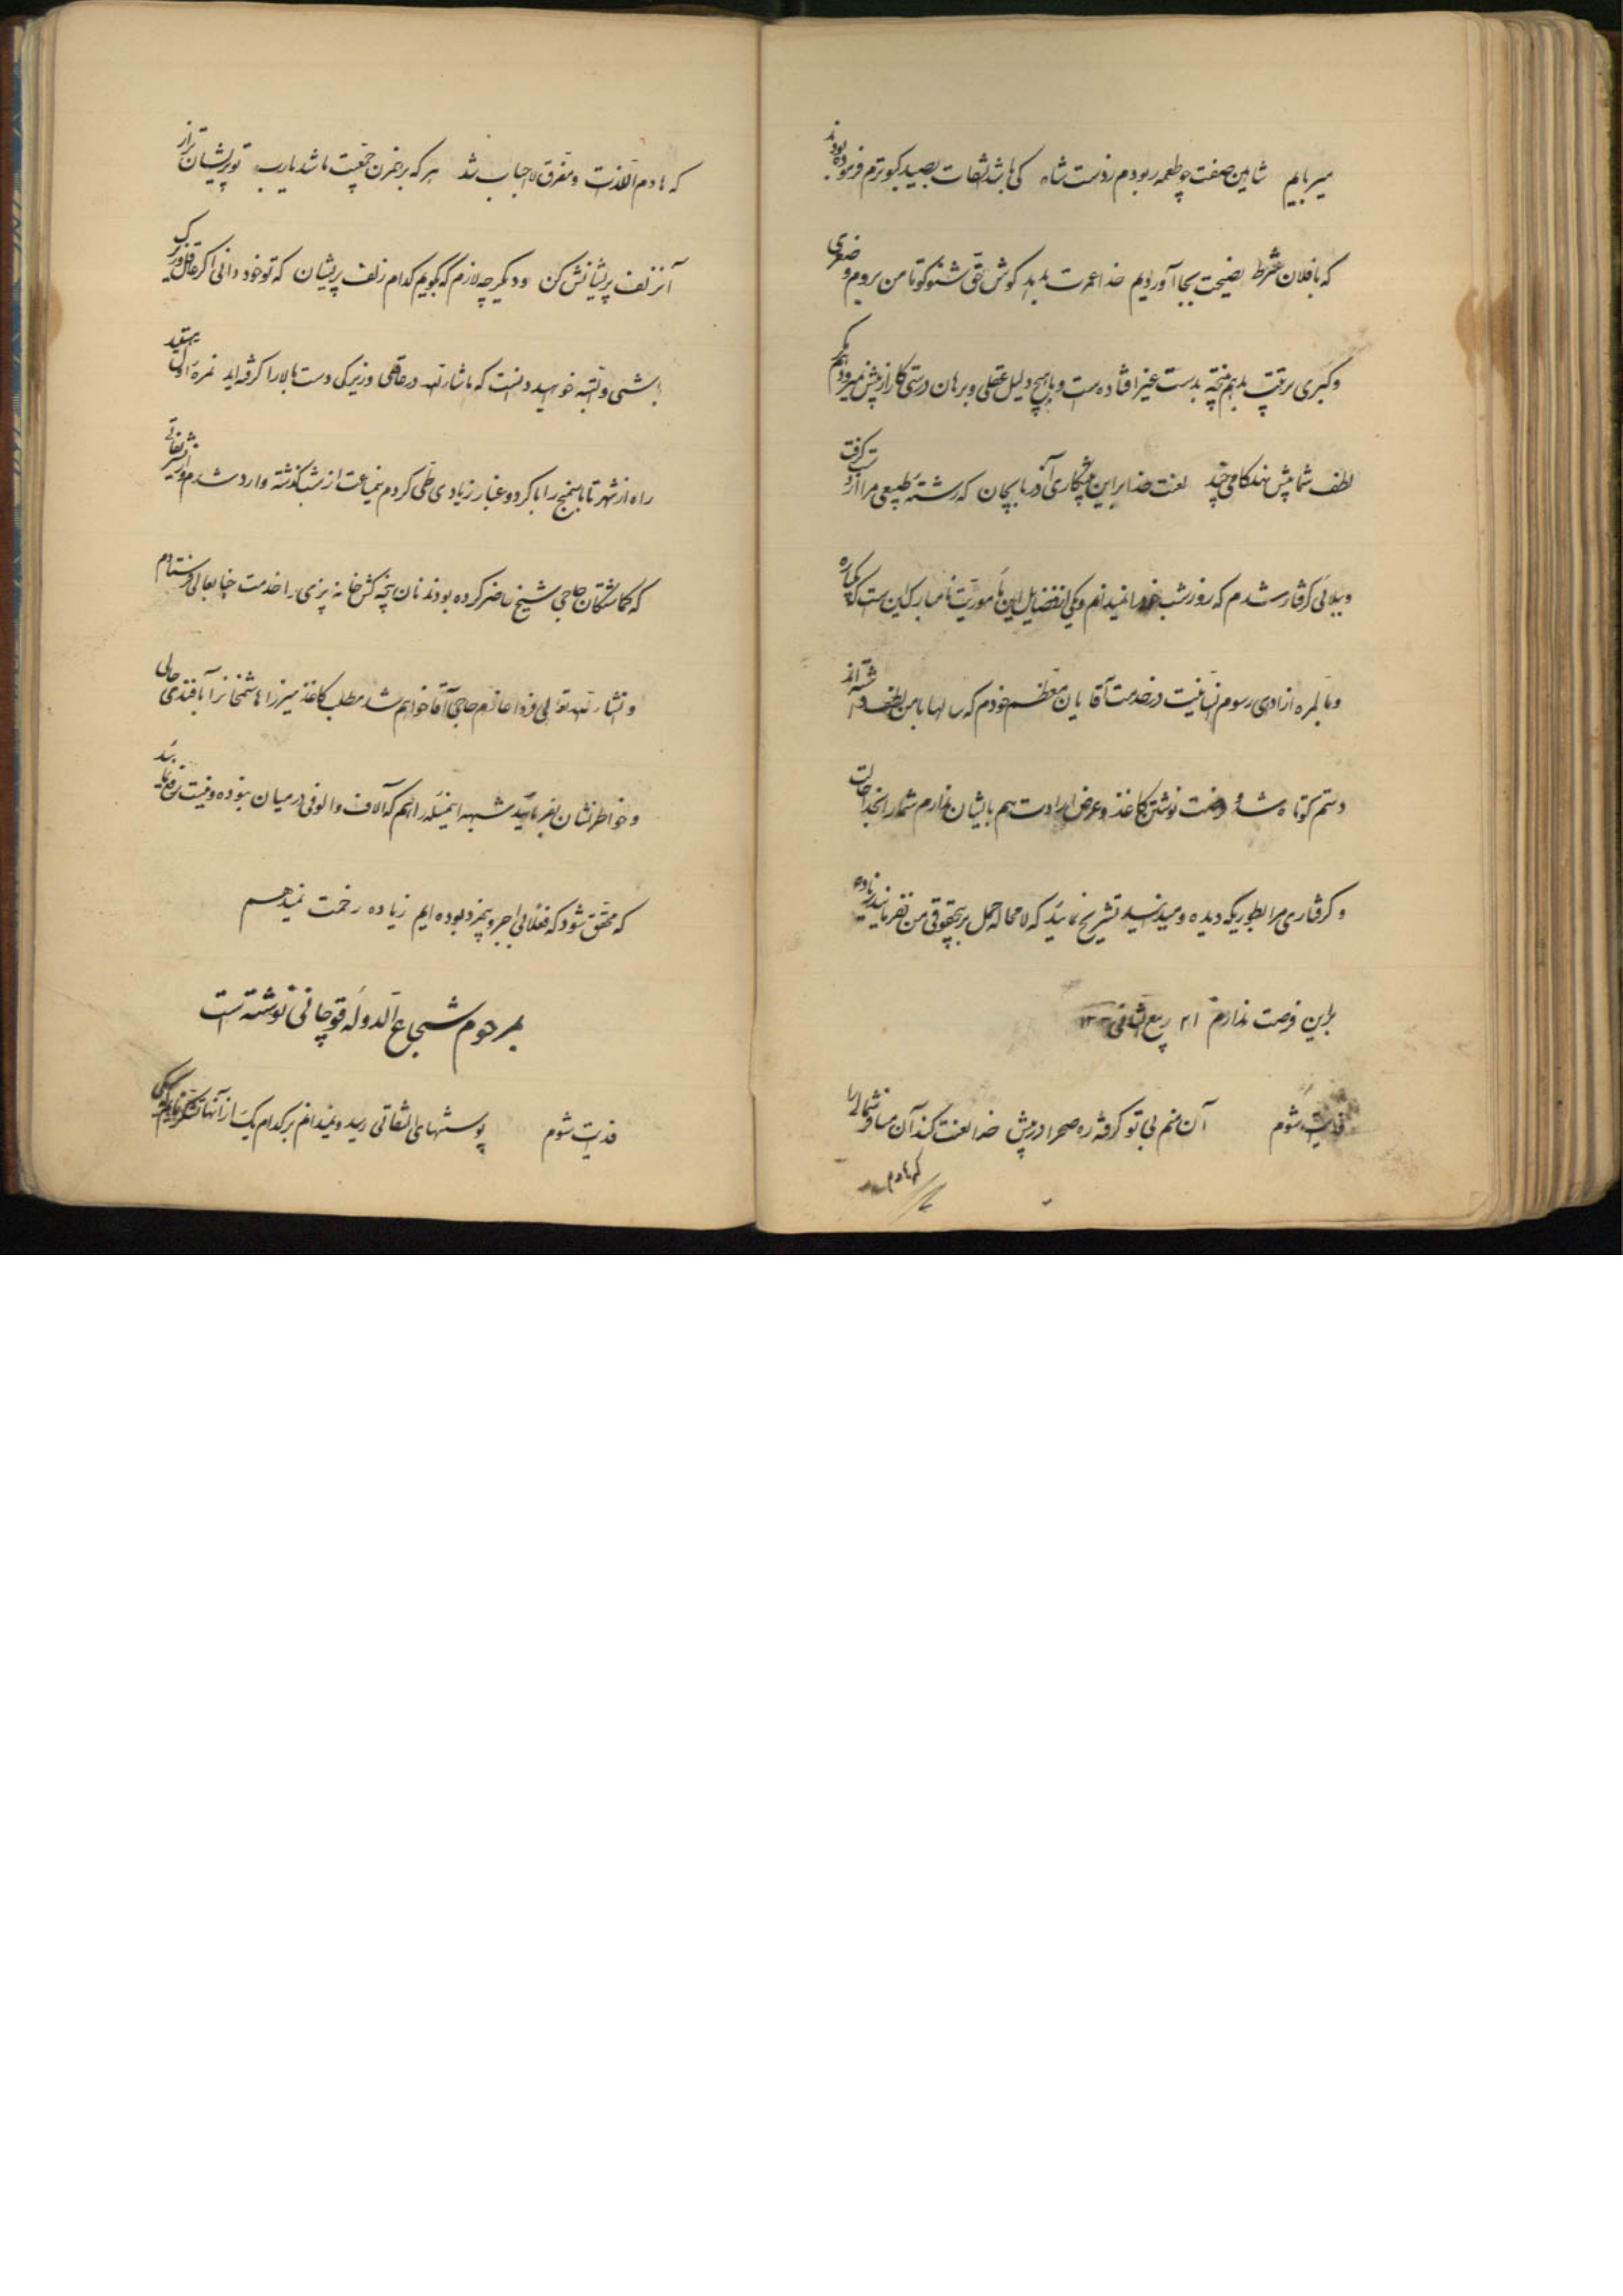 میرباییم شاهین صفت چو طعمه ربودم ز دست شاه کی باشد التفات بصید کبوترم فرموده بودند
که با فلان شرط نصیحت بجا آوردیم خدا عمرت بدهد گوش حق شنو کو تا من بروم و صغری
و کبری ترتیب بدهم نتیجه بدست غیر افتاده است و با هیچ دلیل عقلی و برهان درستی کار از پیش نمیرود هم مگر
لطف شما پیش نهد گامی چند لعنت خدا بر این پیشکاری آذربایجان که رشته طبیعی مرا از دست گرفت
و ببلائی گرفتار شدم که روز و شب خود را نمیدانم و یکی از فضایل این مأموریت نامبارک این است که یکباره
و بالمره از ادای رسوم انسانیت در خدمت آقایان معظم خودم که سالها با من لطف داشته‌اند
دستم کوتاه شد و فرصت نوشتن کاغذ و عرض ارادت هم بایشان ندارم شما را بخدا حالت
و گرفتاری مرا بطوریکه دیده و میدانید تشریح نمائید که لامحاله حمل بر بیحقوقی من نفرمایند زیاده
براین فرصت ندارم ۲۱ ربیع الثانی
فدایت شوم آن منم بی تو گرفته ره صحرا در پیش خدا لعنت کند آن مسافرت شما را
که هادم
که هادم اللذات و مفرق الاحباب شد هر که بر هم زن جمعیت ما شد یارب تو پریشان تر از
آن زلف پریشانش کن و دیگر چه لازم که بگویم کدام زلف پریشان که تو خود دانی اگر عاقل و زیرک
باشی و البته خواهید دانست که ماشاءالله در عاقلی و زیرکی دست بالا را گرفته‌اید نمره اول هستید
راه از شهر تا باسمنج را با گرد و غبار زیادی طی کردم نیمساعت از شب گذشته وارد شدم و از تشریفاتی
که گماشتگان حاجی شیخ حاضر کرده بودند نان پنجه کش خانه پزی را خدمت جنابعالی فرستادم
و انشاءالله تعالی فردا عازم حاجی آقا خواهم شد مطلب کاغذ میرزا هاشم خان را بافندی حالی
و خاطرنشان بفرمائید شبهه این مسئله را هم که آلاف و الوفی در میان نبوده و نیست رفع نمایند
که محقق شود که فعلا بی اجر و بیمزد بوده‌ایم زیاده زحمت نمیدهم
بمرحوم شجاع الدوله قوچانی نوشته است
فدایت شوم پوستهای التفاتی رسید و نمیدانم بر کدام یک از آنها تشکر نمایم